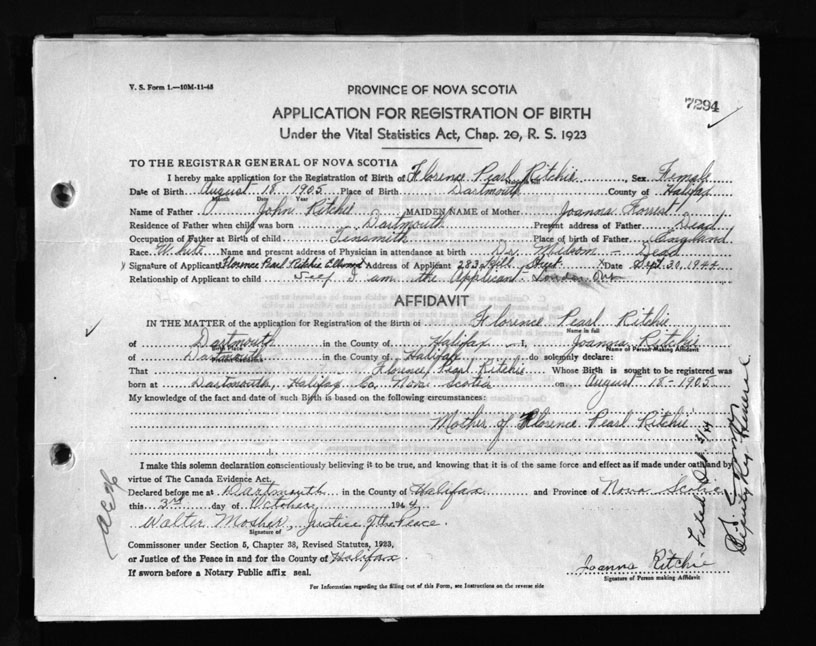 V. S. Form 1.—10M-11-43
PROVINCE OF NOVA SCOTIA
7294
APPLICATION FOR REGISTRATION OF BIRTH
Under the Vital Statistics Act, Chap. 20, R. S. 1923
TO THE REGISTRAR GENERAL OF NOVA SCOTIA
I hereby make application for the Registration of Birth of Florence Pearl Ritchie, Sex Female
Name in full
Date of Birth August 18 1905 Place of Birth Dartmouth County of Halifax
Month Date Year
Name of Father John Ritchie MAIDEN NAME of Mother Joanna Forrest
Residence of Father when child was born Dartmouth Present address of Father Dead
Occupation of Father at Birth of child Tinsmith Place of birth of Father England
Race White Name and present address of Physician in attendance at birth Dr. - Dead
Signature of Applicant Florence Pearl Ritchie Ellwood Address of Applicant 283 Hill Street x Date Sept. 30, 1944
Relationship of Applicant to child Self I am the Applicant London Ont
AFFIDAVIT
IN THE MATTER of the application for Registration of the Birth of Florence Pearl Ritchie
Name in full
of Dartmouth in the County of Halifax I, Joanna Ritchie
Name of Person Making Affidavit
of Dartmouth in the County of Halifax do solemnly declare:
That Florence Pearl Ritchie Whose Birth is sought to be registered was
born at Dartmouth, Halifax Co, Nova Scotia on August 18 - 1905
My knowledge of the fact and date of such Birth is based on the following circumstances:
Mother of Florence Pearl Ritchie
I make this solemn declaration conscientiously believing it to be true, and knowing that it is of the same force and effect as if made under oath and by
virtue of The Canada Evidence Act.
Declared before me at Dartmouth in the County of Halifax and Province of Nova Scotia
this 3rd day of October 1944
Walter Mosher, Justice of the Peace.
Signature of
Commissioner under Section 5, Chapter 38, Revised Statutes, 1923,
or Justice of the Peace in and for the County of Halifax.
If sworn before a Notary Public affix seal.
Joanna Ritchie
Signature of Person making Affidavit
For Information regarding the filling out of this Form, see Instructions on the reverse side
Filed Oct.
Deputy Reg General